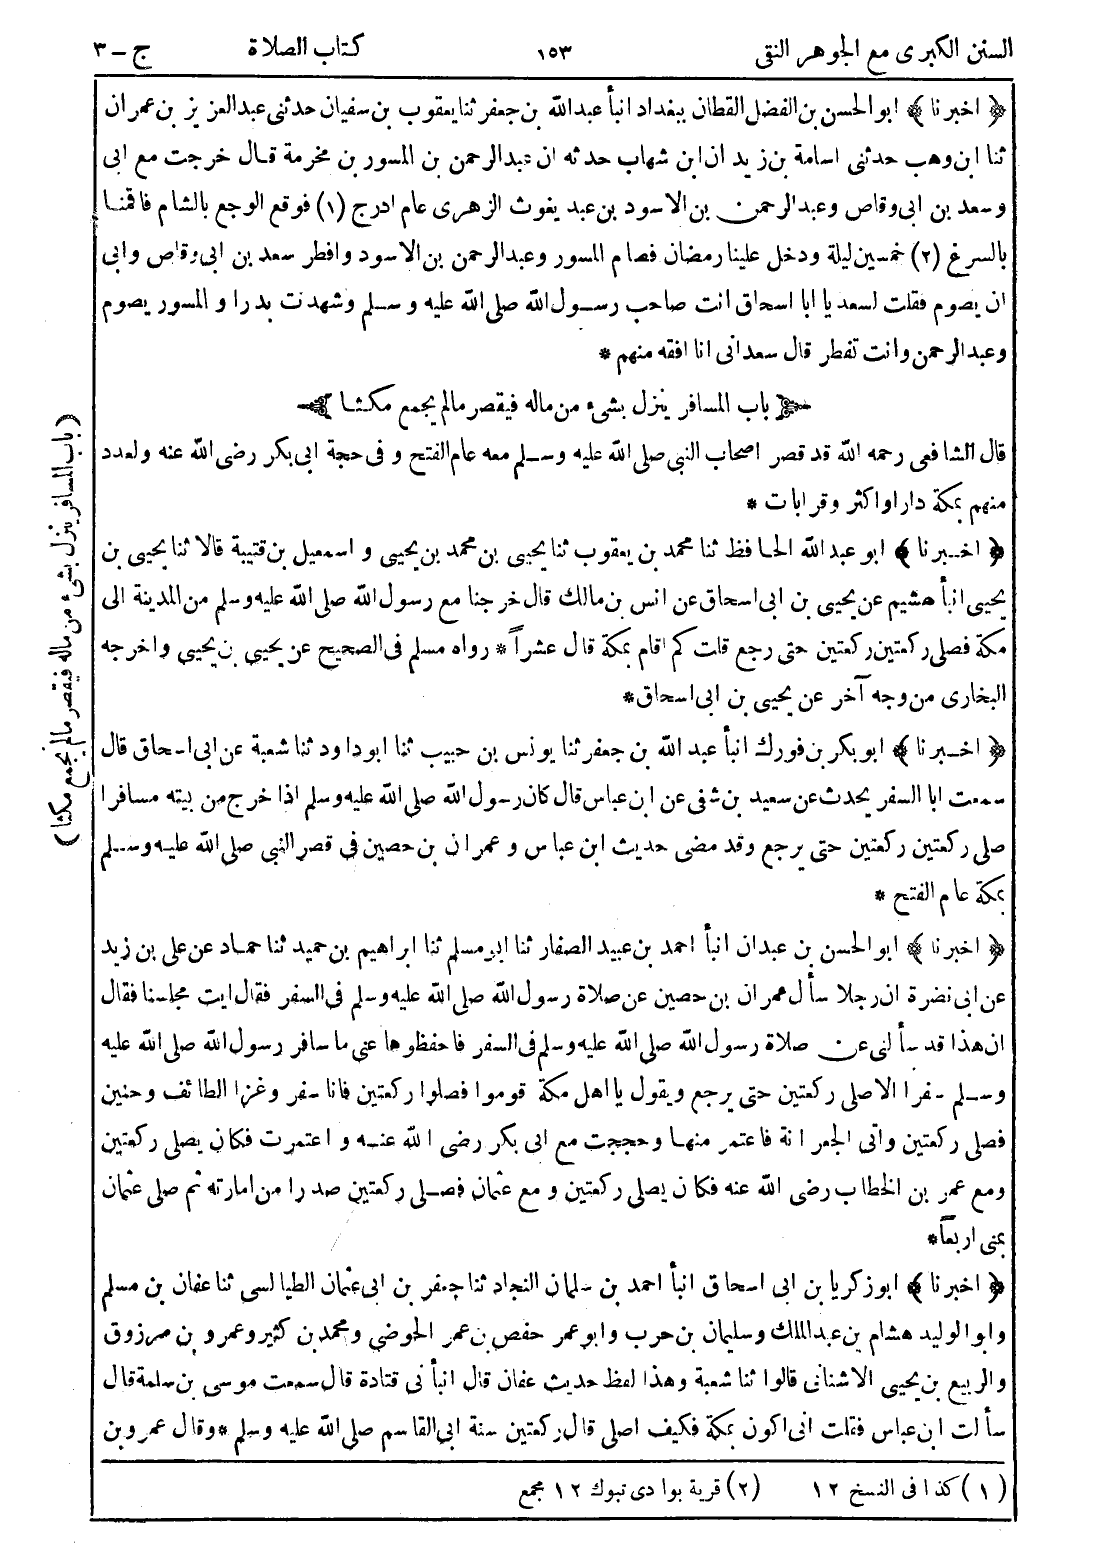 السنن الكبرى مع الجوهر النقى ١٥٣ كتاب الصلاة ج-٣
﴿ اخبرنا ﴾ ابو الحسن بن الفضل القطان ببغداد انبأ عبد الله بن جعفر ثنا يعقوب بن سفيان حدثنى عبد العزيز بن عمران
ثنا ابن وهب حدثنى اسامة بن زيد ان ابن شهاب حدثه ان عبد الرحمن بن المسور بن مخرمة قال خرجت مع ابى
وسعد بن ابى وقاص وعبد الرحمن بن الاسود بن عبد يغوث الزهرى عام ادرج (١) فوقع الوجع بالشام فاقمنا
بالسرغ (٢) خمسين ليلة ودخل علينا رمضان فصام المسور وعبد الرحمن بن الاسود وافطر سعد بن ابى وقاص وابى
ان يصوم فقلت لسعد يا ابا اسحاق انت صاحب رسول الله صلى الله عليه وسلم وشهدت بدرا والمسور يصوم
وعبد الرحمن وانت تفطر قال سعد انى انا افقه منهم *
باب المسافر ينزل بشىء من ماله فيقصر مالم يجمع مكثا
قال الشافعى رحمه الله قد قصر اصحاب النبى صلى الله عليه وسلم معه عام الفتح وفى حجة ابى بكر رضى الله عنه ولعدد
منهم بمكة دار او اكثر وقرابات *
﴿ اخبرنا ﴾ ابو عبد الله الحافظ ثنا محمد بن يعقوب ثنا يحيى بن محمد بن يحيى واسمعيل بن قتيبة قالا ثنا يحيى بن
يحيى انبأ هشيم عن يحيى بن ابى اسحاق عن انس بن مالك قال خرجنا مع رسول الله صلى الله عليه وسلم من المدينة الى
مكة فصلى ركعتين ركعتين حتى رجع قلت كم اقام بمكة قال عشراً * رواه مسلم فى الصحيح عن يحيى بن يحيى واخرجه
البخارى من وجه آخر عن يحيى بن ابى اسحاق *
﴿ اخبرنا ﴾ ابو بكر بن فورك انبأ عبد الله بن جعفر ثنا يونس بن حبيب ثنا ابو داود ثنا شعبة عن ابى اسحاق قال
سمعت ابا السفر يحدث عن سعيد بن شفى عن ابن عباس قال كان رسول الله صلى الله عليه وسلم اذا خرج من بيته مسافرا
صلى ركعتين ركعتين حتى يرجع وقد مضى حديث ابن عباس وعمران بن حصين فى قصر النبى صلى الله عليه وسلم
بمكة عام الفتح *
﴿ اخبرنا ﴾ ابو الحسن بن عبدان انبأ احمد بن عبيد الصفار ثنا ابو مسلم ثنا ابراهيم بن حميد ثنا حماد عن على بن زيد
عن ابى نضرة ان رجلا سأل عمران بن حصين عن صلاة رسول الله صلى الله عليه وسلم فى السفر فقال ايت مجلسنا فقال
ان هذا قد سألنى عن صلاة رسول الله صلى الله عليه وسلم فى السفر فاحفظوها عنى ما سافر رسول الله صلى الله عليه
وسلم سفرا الا صلى ركعتين حتى يرجع ويقول يا اهل مكة قوموا فصلوا ركعتين فانا سفر وغزا الطائف وحنين
فصلى ركعتين واتى الجعرانة فاعتمر منها وحججت مع ابى بكر رضى الله عنه واعتمرت فكان يصلى ركعتين
ومع عمر بن الخطاب رضى الله عنه فكان يصلى ركعتين ومع عثمان فصلى ركعتين صدرا من امارته ثم صلى عثمان
بمنى اربعاً *
﴿ اخبرنا ﴾ ابو زكريا بن ابى اسحاق انبأ احمد بن سلمان النجاد ثنا جعفر بن ابى عثمان الطيالسى ثنا عفان بن مسلم
وابو الوليد هشام بن عبد الملك وسليمان بن حرب وابو عمر حفص بن عمر الحوضى ومحمد بن كثير وعمرو بن مرزوق
والربيع بن يحيى الاشنانى قالوا ثنا شعبة وهذا لفظ حديث عفان قال انبأنى قتادة قال سمعت موسى بن سلمة قال
سألت ابن عباس فقلت انى اكون بمكة فكيف اصلى قال ركعتين سنة ابى القاسم صلى الله عليه وسلم * وقال عمرو بن
(١) كذا فى النسخ ١٢ (٢) قرية بوادى تبوك ١٢ مجمع
(باب المسافر ينزل بشىء من ماله فيقصر مالم يجمع مكثا)